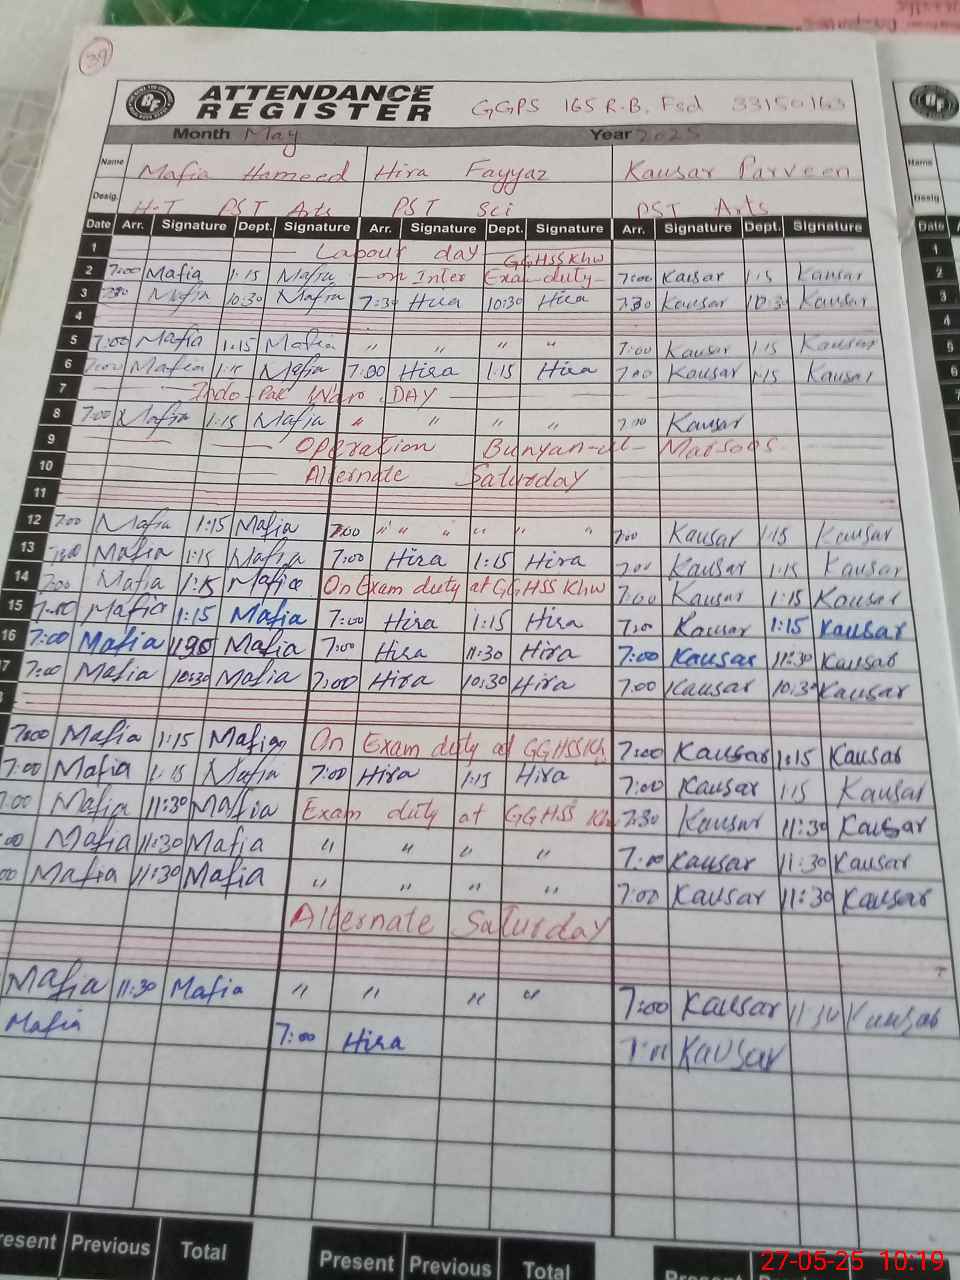 39
ATTENDANCE
REGISTER GGPS 165 R.B. Fsd 33150163
Month May Year 2025
Name Mafia Hameed Hira Fayyaz Kausar Parveen
Desig. H.T PST Arts PST Sci PST Arts
Date Arr. Signature Dept. Signature Arr. Signature Dept. Signature Arr. Signature Dept. Signature
1 Labour day
GGHSS Khw
2 7:00 Mafia 1:15 Mafia on Inter Exam-duty- 7:00 Kausar 1:15 Kausar
3 7:30 Mafia 10:30 Mafia 7:30 Hira 10:30 Hira 7:30 Kausar 10:30 Kausar
4
5 7:00 Mafia 1:15 Mafia " " " " 7:00 Kausar 1:15 Kausar
6 7:00 Mafia 1:15 Mafia 7:00 Hira 1:15 Hira 7:00 Kausar 1:15 Kausar
7 Indo-Pak War DAY
8 7:00 Mafia 1:15 Mafia " " " " 7:00 Kausar
9 Operation Bunyan-ul-Marsoos
10 Alternate Saturday
11
12 7:00 Mafia 1:15 Mafia 7:00 " " " " " 7:00 Kausar 1:15 Kausar
13 7:00 Mafia 1:15 Mafia 7:00 Hira 1:15 Hira 7:00 Kausar 1:15 Kausar
14 7:00 Mafia 1:15 Mafia On Exam duty at GGHSS Khw 7:00 Kausar 1:15 Kausar
15 7:00 Mafia 1:15 Mafia 7:00 Hira 1:15 Hira 7:00 Kausar 1:15 Kausar
16 7:00 Mafia Mafia 7:00 Hira 11:30 Hira 7:00 Kausar 11:30 Kausar
7 7:00 Mafia 10:30 Mafia 7:00 Hira 10:30 Hira 7:00 Kausar 10:30 Kausar
7:00 Mafia 1:15 Mafia On Exam duty at GGHSS Kh 7:00 Kausar 1:15 Kausar
7:00 Mafia 1:15 Mafia 7:00 Hira 1:15 Hira 7:00 Kausar 1:15 Kausar
7:00 Mafia 11:30 Mafia Exam duty at GGHSS Kh 7:30 Kausar 11:30 Kausar
:00 Mafia 11:30 Mafia " " " " 7:00 Kausar 11:30 Kausar
00 Mafia 11:30 Mafia " " " " 7:00 Kausar 11:30 Kausar
Alternate Saturday
Mafia 11:30 Mafia " " " " 7:00 Kausar 11:30 Kausar
Mafia 7:00 Hira 7:00 Kausar
resent Previous Total Present Previous Total Present
27-05-25 10:19
Name
Desig
Date
1
2
3
4
5
6
7